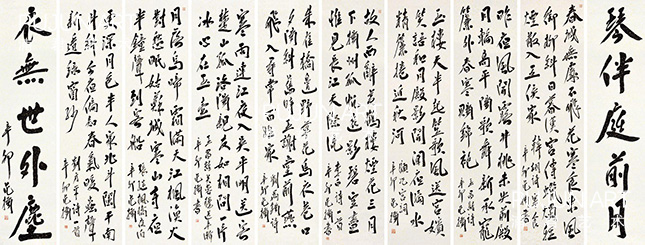 琴伴庭前月
春城無處不飛花寒食東風
御柳斜日暮漢宮傳蠟燭輕
煙散入五侯家
辛卯
昨夜風開露井桃未央前殿
月輪高平陽歌舞新承寵
簾外春寒賜錦袍
辛卯
玉樓天半起笙歌風送宮嬪
笑語和月殿影開聞夜漏水
精簾捲近秋河
辛卯
故人西辭黃鶴樓煙花三月
下揚州孤帆遠影碧空盡
惟見長江天際流
辛卯
朱雀橋邊野草花烏衣巷口
夕陽斜舊時王謝堂前燕
飛入尋常百姓家
辛卯
寒雨連江夜入吳平明送客
楚山孤洛陽親友如相問一片
冰心在玉壺
辛卯
月落烏啼霜滿天江楓漁火
對愁眠姑蘇城外寒山寺夜
半鐘聲到客船
辛卯
更深月色半人家北斗闌干南
斗斜今夜偏知春氣暖蟲聲
新透綠窗紗
辛卯
衣無世外塵
辛卯